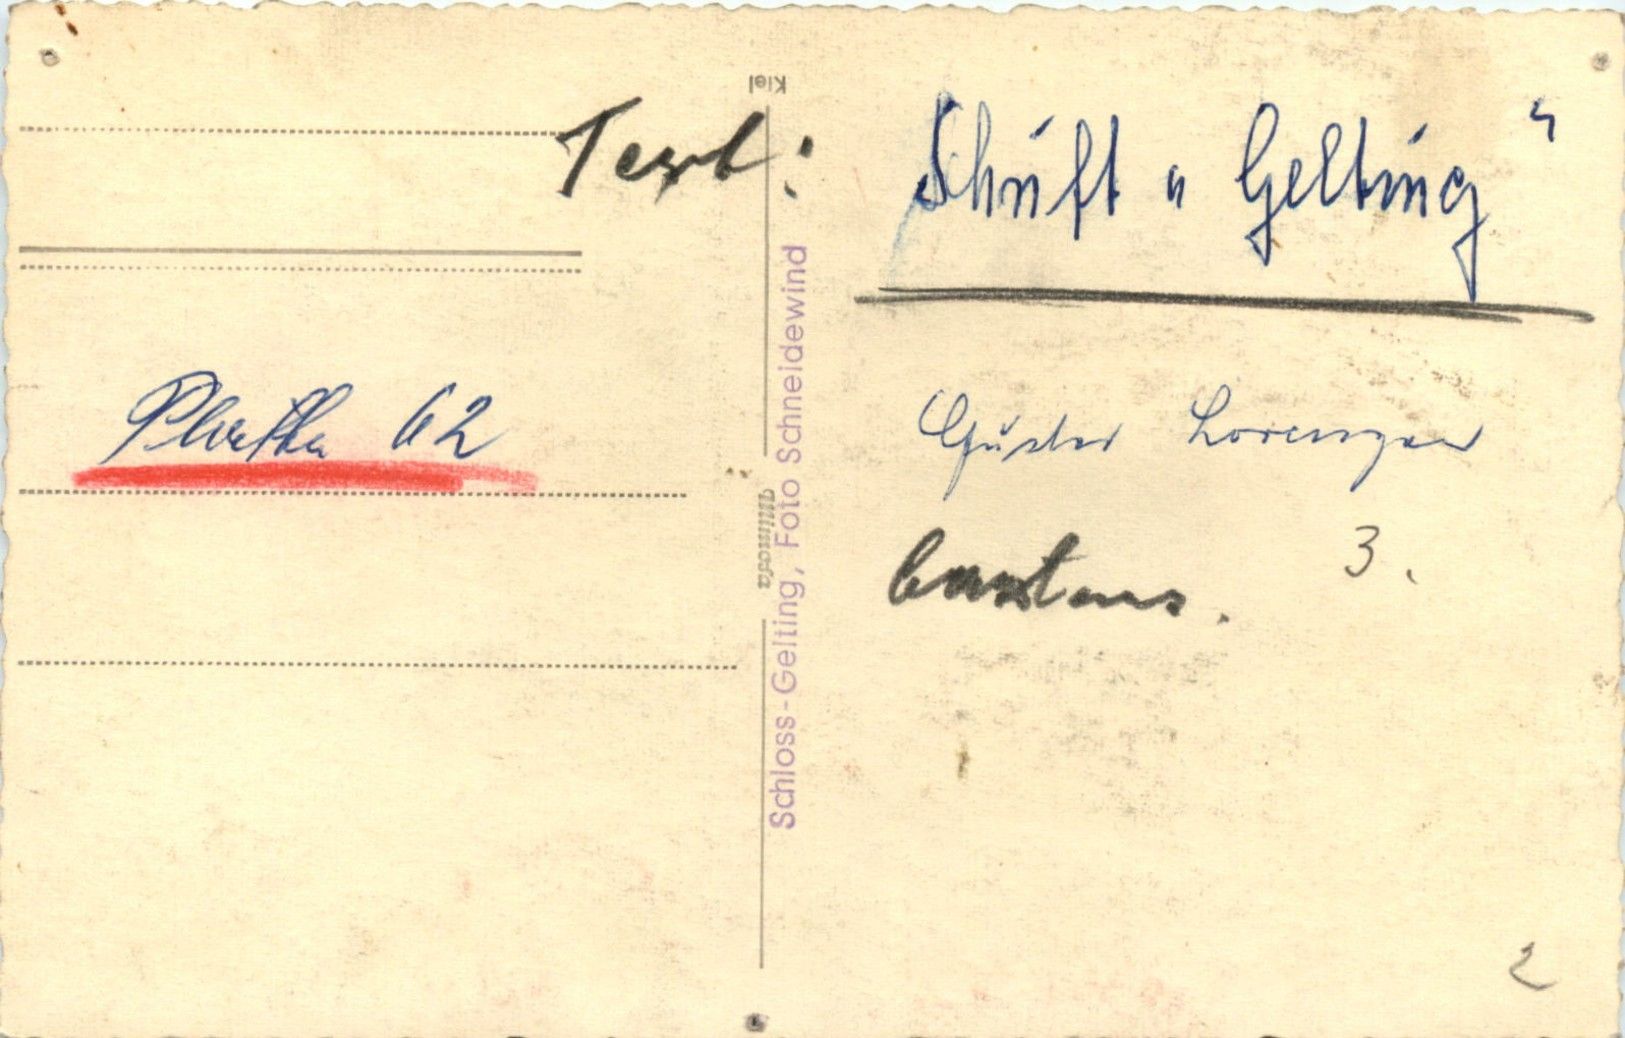 Kiel
Text: Schrift " Gelting "
Schloss-Gelting, Foto Schneidewind
62
Gustav Lorenzen
3.
2